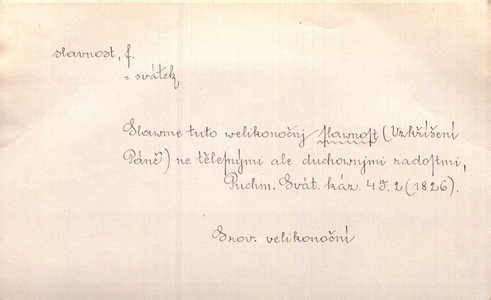 slavnost, f.
= svátek
Slawme tuto welikonočnj slawnost (Uzkřišení
Páně) ne tělesnými ale duchownjmi radostmi,
Puchm. Svát. káz. 2 (1826).
Srov. velikonoční